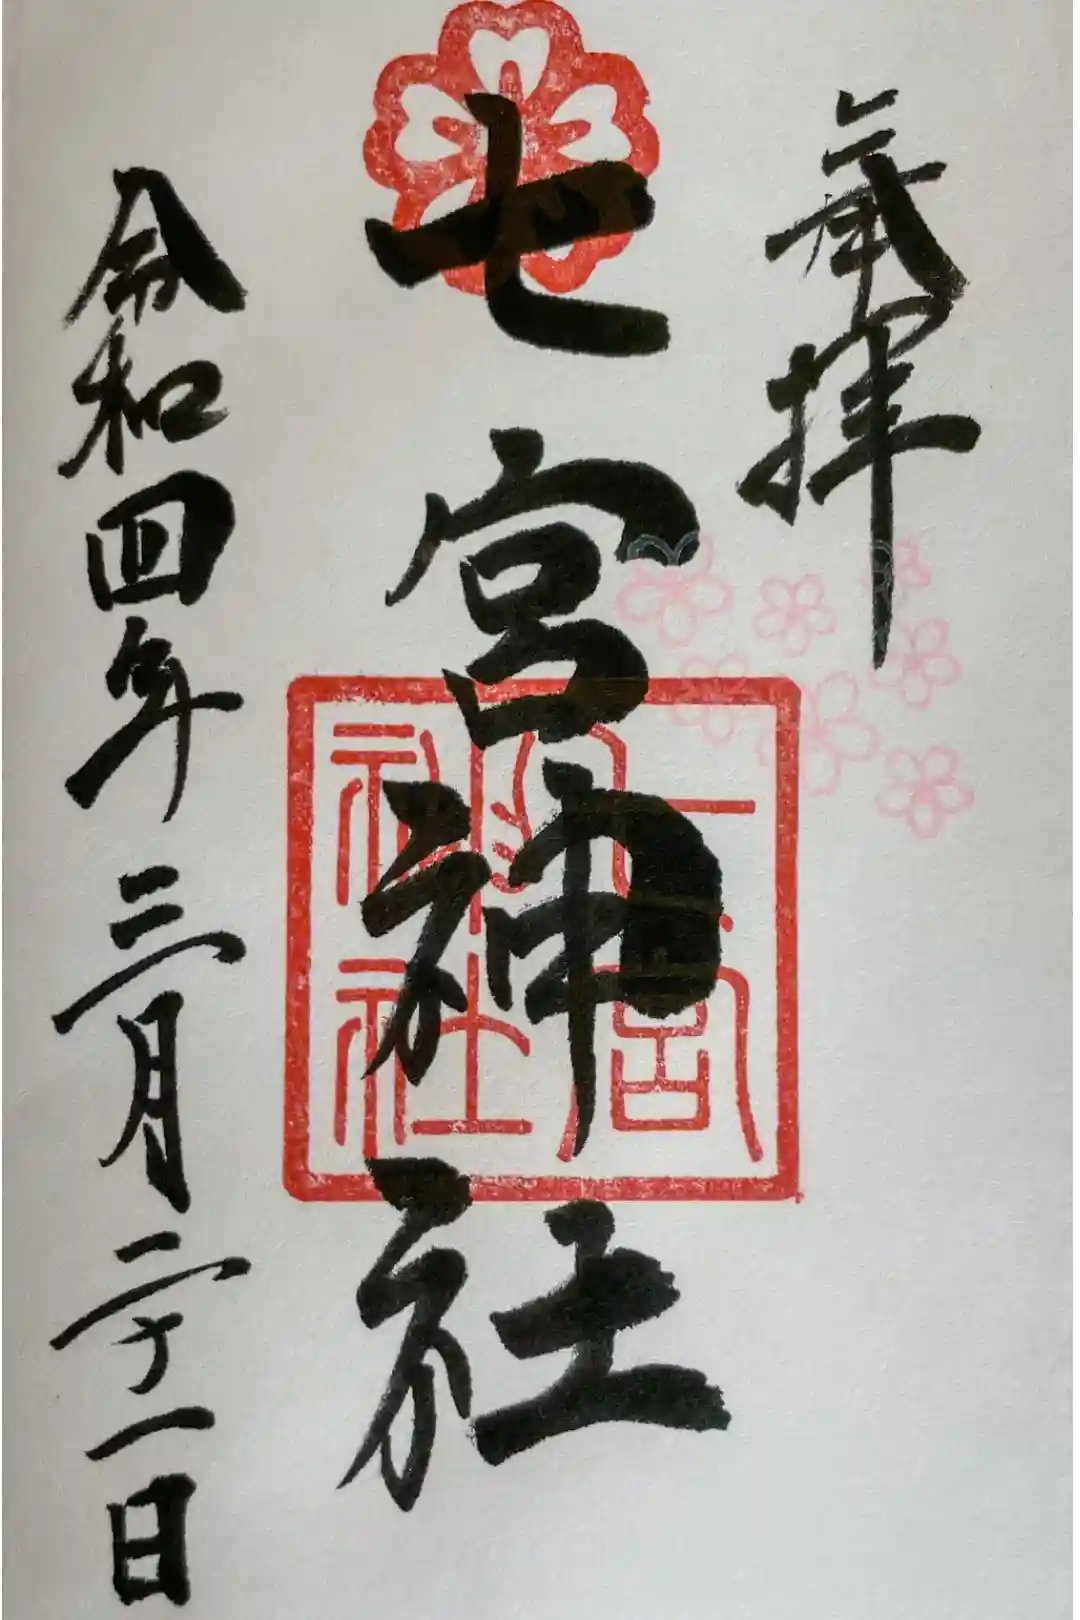 奉拝
七宮神社
七宮
神社
令和四年三月二十一日